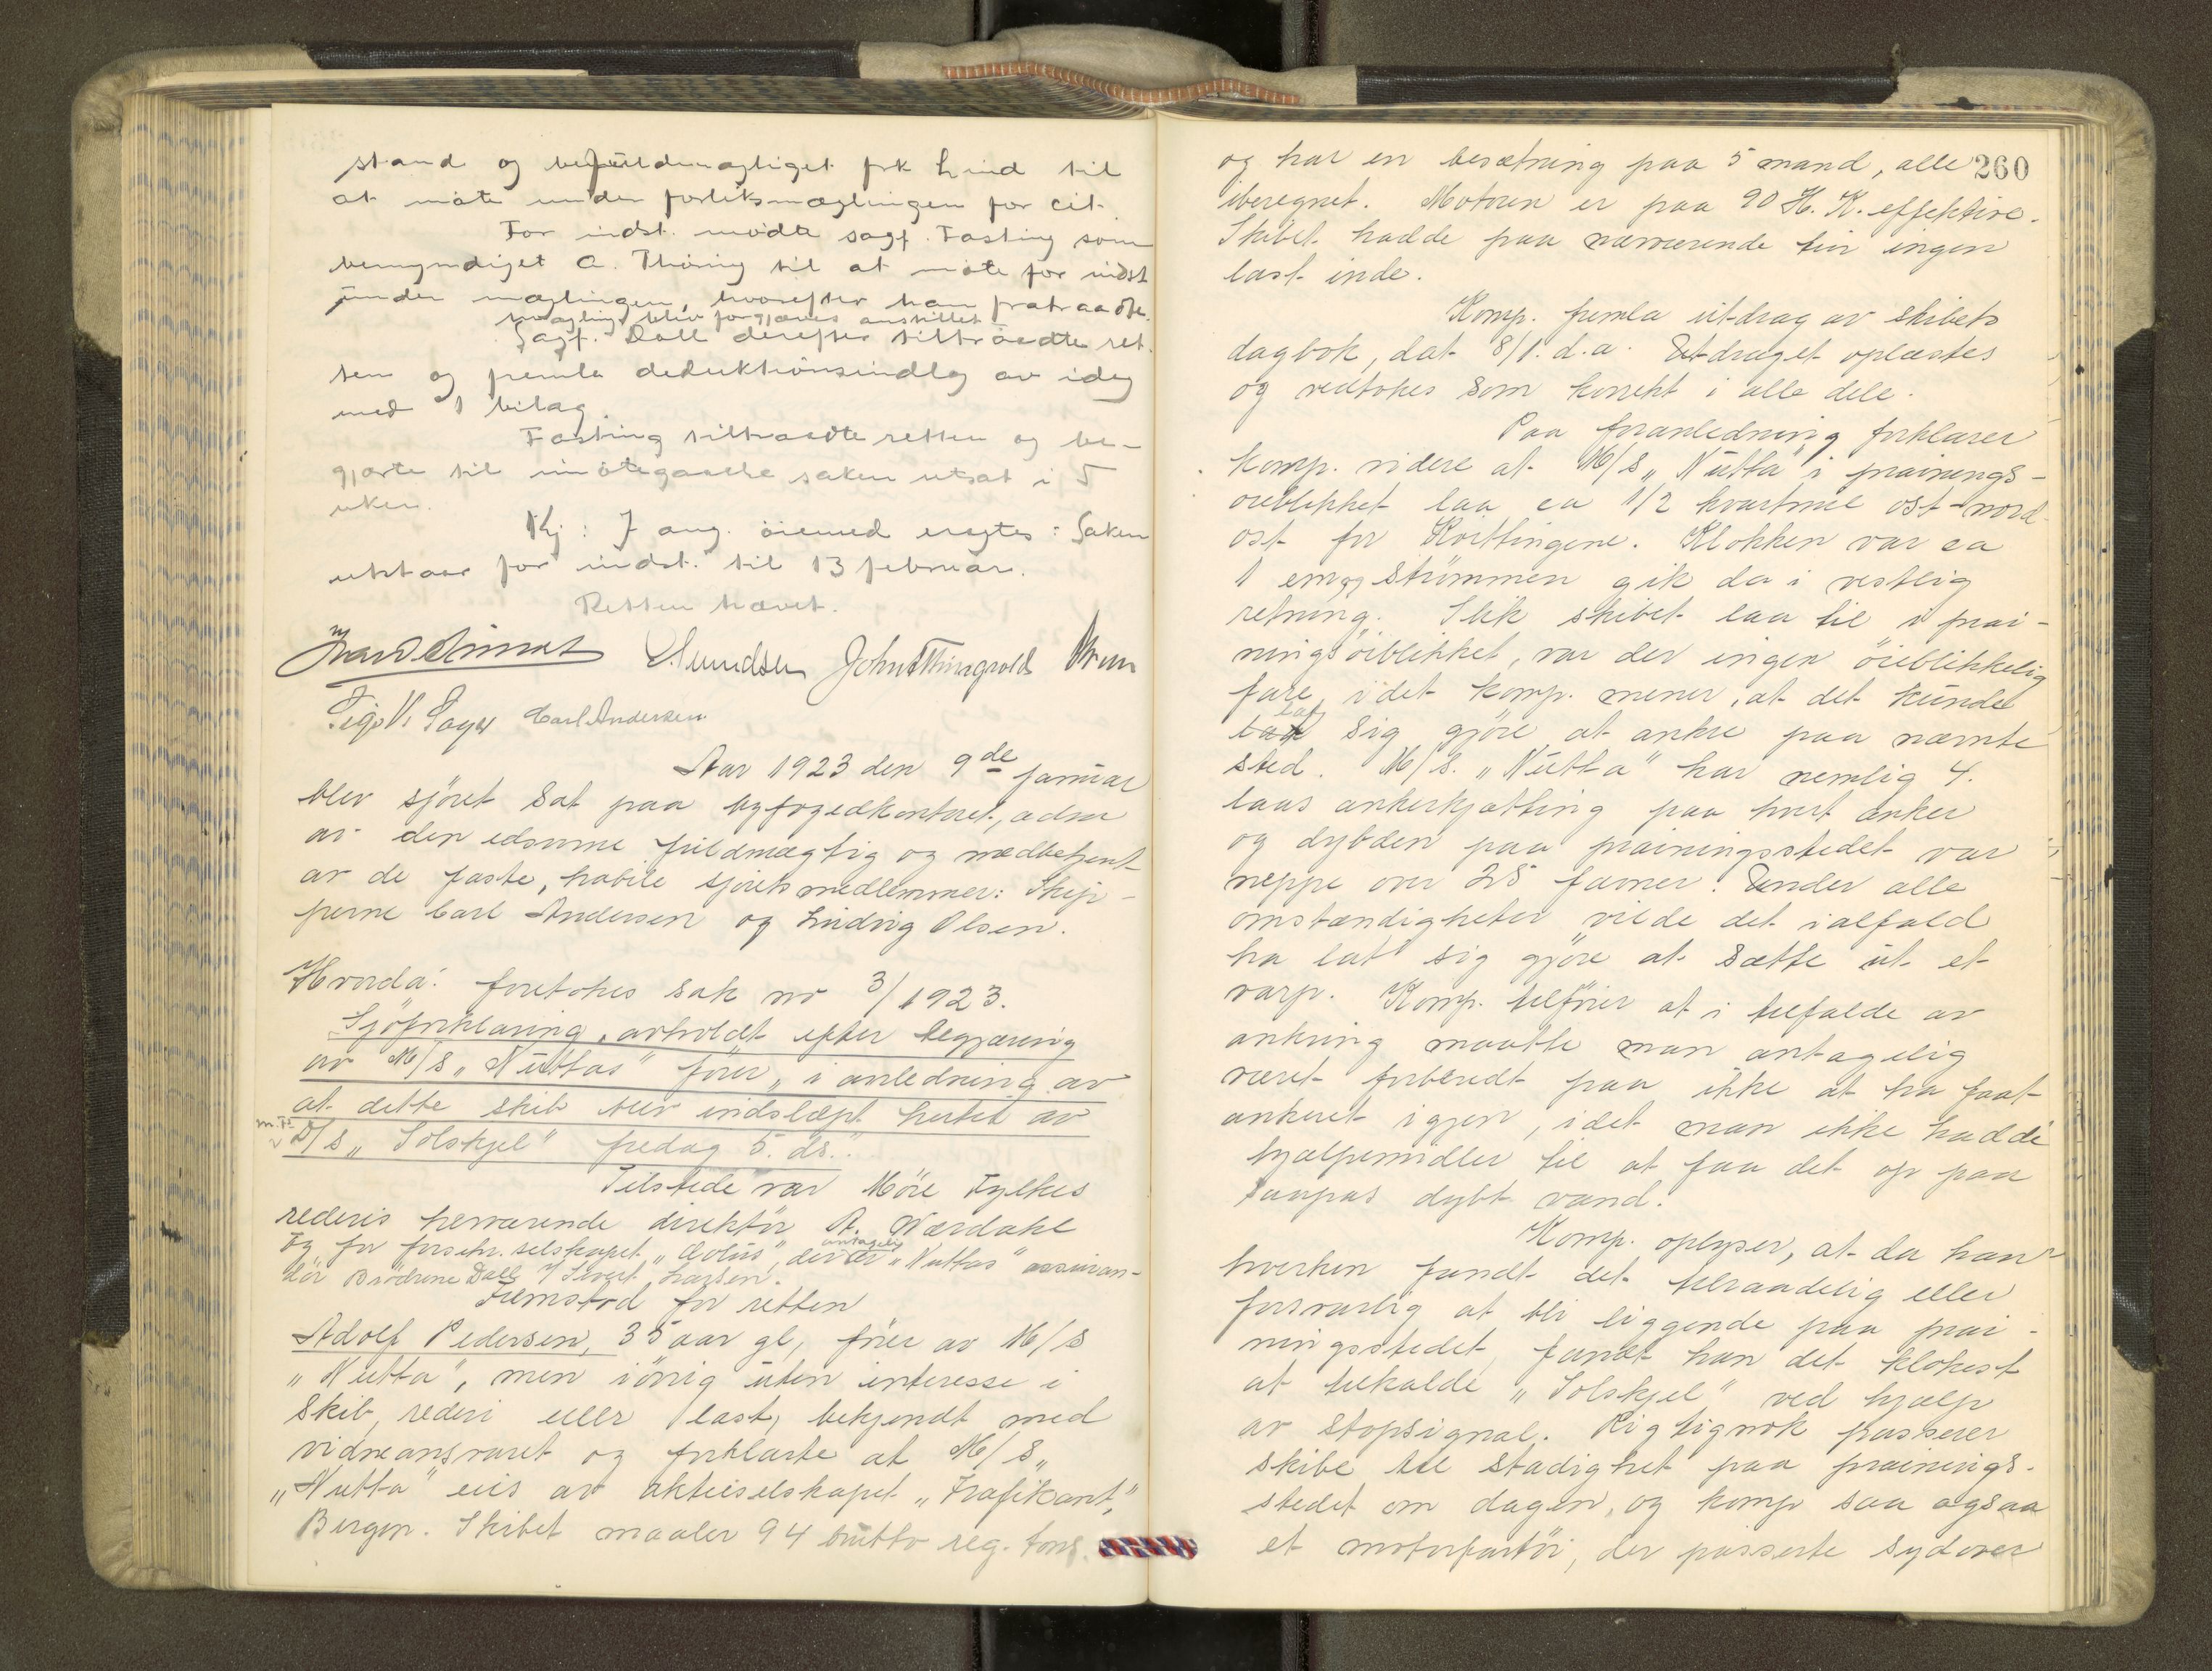 stand og befuldmægtiget frk Lind til
at møte under forliksmæglingen for cit.
For indst. mødte sagf. Fasting som
bemyndiget A. Thörig til at møte for indst
under mæglingen, hvorefter han fratraadte.
Mægling blev forgjæves anstillet
Sagf. Dall derefter tiltraadte ret-
ten og fremla deduktionsindlæg av idag
med 1 bilag.
Fasting tiltraadte retten og be-
gjærte til imøtegaaelse saken utsat i 5
uker.
Kj: I ang. øiemed eragtes: Saken
utstaar for indst. til 13 februar.
Retten hævet.
Carl Andersen
Aar 1923 den 9de januar
blev sjöret sat paa byfogedkontoret, adm
av den edsvorne fuldmægtig og medbetjent
av de faste, habile sjöretsmedlemmer: Skip-
perne Carl Andersen og Ludvig Olsen.
Hvorda: foretokes sak no 3/1923.
Sjöforklaring, avholdt efter begjæring
av M/S „Nuttas" förer „i anledning av
at dette skib blev indslæpt hertil av
D/S „Solskjel" fredag 5. ds."
Tilstede var Möre Fylkes
rederis herværende direktör A. Værdahl
og for forsikr.selskapet „Æolus", der antagelig er „Nuttas" assuran-
dör Brödrene Dall v/ Sivert Larsen.
Fremstod for retten
Adolf Pedersen, 35 aar gl, förer av M/S
„Nutta", men iövrig uten interesse i
skib, rederi eller last, bekjendt med
vidneansvaret og forklarte at M/S
„Nutta" eies av aktieselskapet „Trafikant",
Bergen. Skibet maaler 94 brutto reg. tons
260
og har en besætning paa 5 mand, alle
iberegnet. Motoren er paa 90 H. K. effektive.
Skibet hadde paa nærværende tur ingen
last inde.
Komp. fremla utdrag av skibets
dagbok, dat 8/1. d.a. Utdraget oplæstes
og vedtokes som korrekt i alle dele.
Paa foranledning forklarer
komp. videre at M/S „Nutta" i prainings-
öieblikket laa ca 1/2 kvartmil ost-nord-
ost for Kvittingene. Klokken var ca
1 em og strömmen gik da i vestlig
retning. Slik skibet laa til i prai-
ningsöiblikket, var der ingen öieblikkelig
fare, idet komp. mener, at det kunde
lat sig gjöre at ankre paa nævnte
sted. M/S. „Nutta" har nemlig 4.
laas ankerkjætting paa hvert anker
og dybden paa prainingsstedet var
neppe over 25 favner. Under alle
omstændigheter vilde det ialfald
ha lat sig gjöre at sætte ut et
varp. Komp. tilföier at i tilfælde av
ankring maatte man antagelig
været forberedt paa ikke at ha faat
ankeret igjen, idet man ikke hadde
hjælpemidler til at faa det op paa
saapas dybt vand.
Komp. oplyser, at da han
hverken fandt det tilraadelig eller
forsvarlig at bli liggende paa prai-
ningsstedet, fandt han det klokest
at tilkalde „Solskjel" ved hjælp
av stopsignal. Rigtignok passerer
skibe til stadighet paa prainings-
stedet om dagen, og komp saa ogsaa
et motorfartöi, der passerte sydover